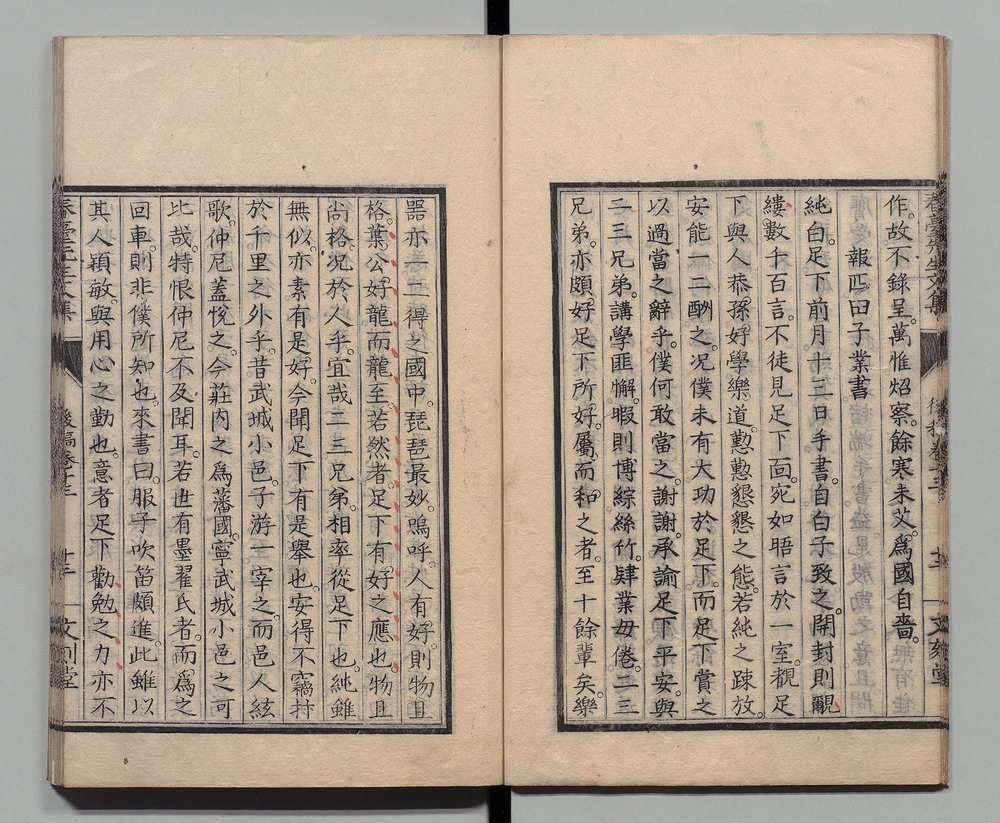 作。故不錄呈。萬惟炤察。餘寒未艾。爲國自嗇。
報匹田子業書
純白。足下前月十三日手書。自白子致之。開封則覼
縷數千百言。不徒見足下面。宛如晤言於一室。觀足
下與人恭孫。好學樂道。懃懃懇懇之態。若純之疎放。
安能一二酬之。況僕未有大功於足下。而足下賞之
以過當之辭乎。僕何敢當之。謝謝。承諭足下平安。與
二三兄弟。講學匪懈。暇則博綜絲竹。肄業毋倦。二三
兄弟。亦頗好足下所好。屬而和之者。至十餘輩矣。樂
器亦一二得之國中。琵琶最妙。嗚呼。人有好。則物且
格。葉公好龍而龍至。若然者。足下有好之應也。物且
尚格。況於人乎。宜哉二三兄弟。相率從足下也。純雖
無似。亦素有是好。今聞足下有是舉也。安得不竊抃
於千里之外乎。昔武城小邑。子游一宰之。而邑人絃
歌。仲尼蓋悅之。今莊內之爲藩國。寧武城小邑之可
比哉。特恨仲尼不及聞耳。若世有墨翟氏者。而爲之
回車。則非僕所知也。來書曰。服子吹笛頗進。此雖以
其人穎敏。與用心之勤也。意者足下勸勉之力。亦不
春臺先生文集
後稿卷十三
十三
文刻堂